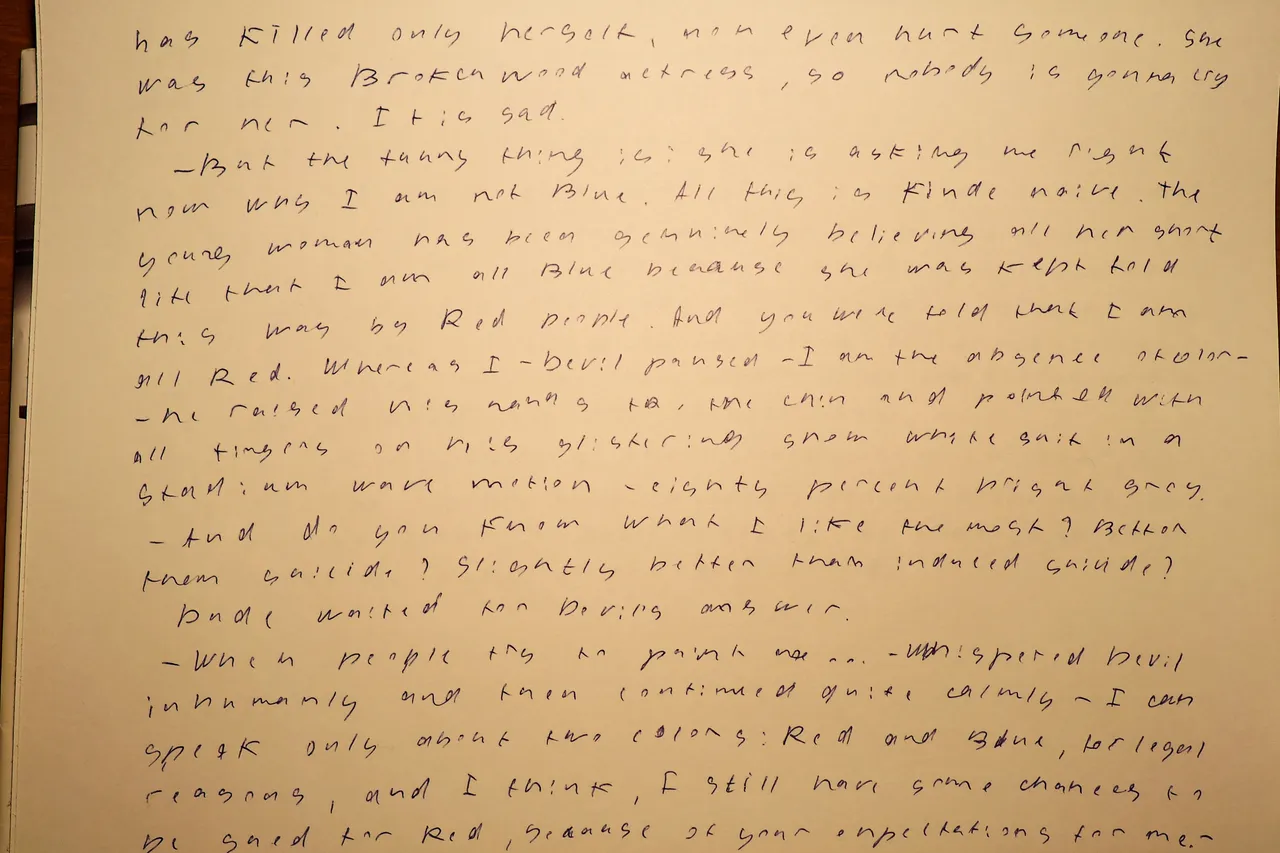 has killed only herself, non even hurt someone. She
was this Brokenwood actress, so nobody is gonna cry
for her. It is sad.
- But the funny thing is: she is asking me right
now why I am not Blue. All this is kinde naive. The
young woman has been genuinely believing all her short
life that I am all Blue because she was kept told
this way by Red people. And you were told that I am
all Red. Whereas I - Devil paused - I am the absence of color -
- he raised his hands to, the chin and pointed with
all fingers on his glistering snow white suit in a
stadium wave motion - eighty percent bright gray.
- And do you know what I like the most? Better
them suicide? Slightly better than induced suicide?
Dude waited for Devils answer.
- When people try to paint me... - whispered Devil
inhumanly and then continued quite calmly - I can
speak only about two colors: Red and Blue, for legal
reasons, and I think, I still have some chances to
be sued for Red, because of your expectations for me. -